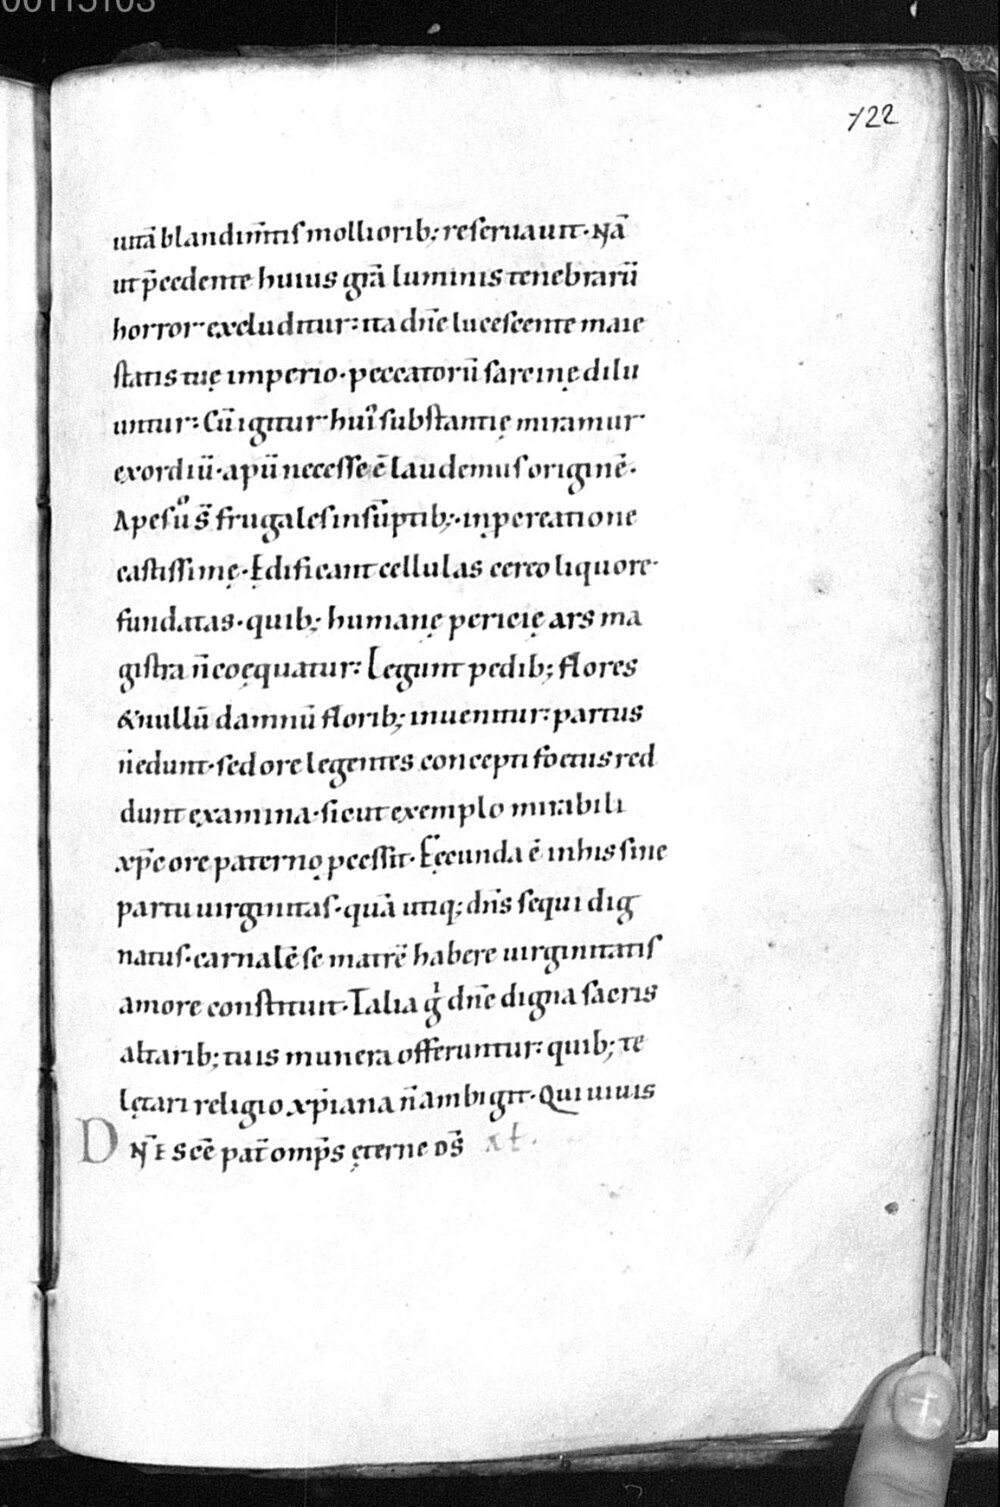 00115103
122
uitā blandim̄tis mollioriƀ; reseruauit · Nā
ut p̄cedente huius grā luminis tenebrarū
horror excluditur: ita dn̄e lucescente maie
statis tuę imperio · peccatorū sarcinę dilu
untur: Cū igitur hui᾽ substantię miramur
exordiū · apū necesse ē laudemus originē ·
Apes ůo s̄ frugales in sūptiƀ; · in pcreatione
castissimę · Ędificant cellulas cereo liquore ·
fundatas · quiƀ; humanę pericię ars ma
gistra n̄ coęquatur: Legunt pediƀ; flores
& nullū damnū floriƀ; inuenitur: partus
n̄ edunt · sed ore legentes concepti foetus red
dunt examina · sicut exemplo mirabili
xp̄c ore paterno pcessit · Fęcunda ē in his sine
partu uirginitas · quā utiq; dn̄s sequi dig
natus · carnalē se matrē habere uirginitatis
amore constituit · Talia g̊ dn̄e digna sacris
altariƀ; tuis munera offeruntur: quiƀ; te
lętari religio xp̄iana n̄ ambigit · Qui uiuis
DN̄E SCĒ pat̄ omp̄s ęterne DS̄